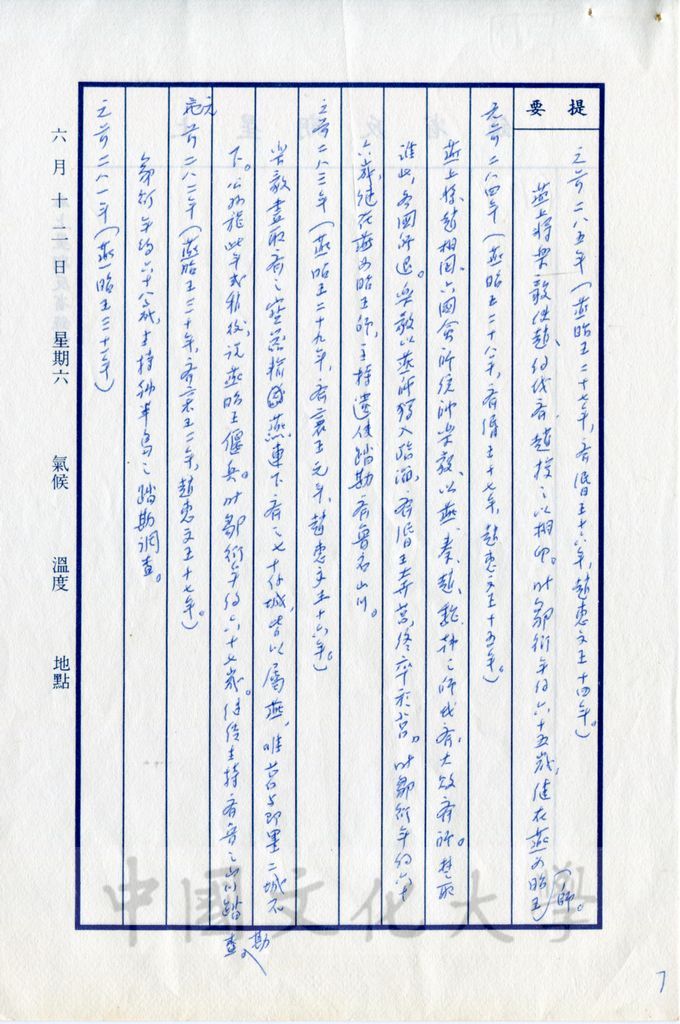 提要
元前二八五年（燕昭王二十七年，齊湣王十六年，趙惠文王十四年。）
燕上將樂毅使趙，約伐齊，趙授之以相印。時鄒衍年約六十五歲，續在燕為昭王師。
元前二八四年（燕昭王二十八年，齊湣王十七年，趙惠文王十五年。）
燕上將、趙相國、六國會師統帥樂毅，以燕、秦、趙、魏、韓之師伐齊，大敗齊師。楚取
淮北，各國師退。樂毅以燕師獨入臨淄，齊湣王奔莒，終卒於莒。時鄒衍年約六十
六歲，續在燕為昭王師，主持遣使踏勘齊魯名山川。
元前二八三年（燕昭王二十九年，齊襄王元年，趙惠文王十六年。）
樂毅盡取齊之寶器輸國燕，連下齊之七十餘城，皆以屬燕，唯莒與即墨二城不
下。公孫龍此年或稍後，說燕昭王偃兵。時鄒衍年約六十七歲。繼續主持齊魯之山川踏勘查。
元前二八二年（燕昭王三十年，齊襄王二年，趙惠文王十七年。）
鄒衍年約六十八歲，主持神半島之踏勘調查。
元前二八一年（燕昭王三十一年）
六月十二日 星期六 氣候 溫度 地點
中國文化大學
7